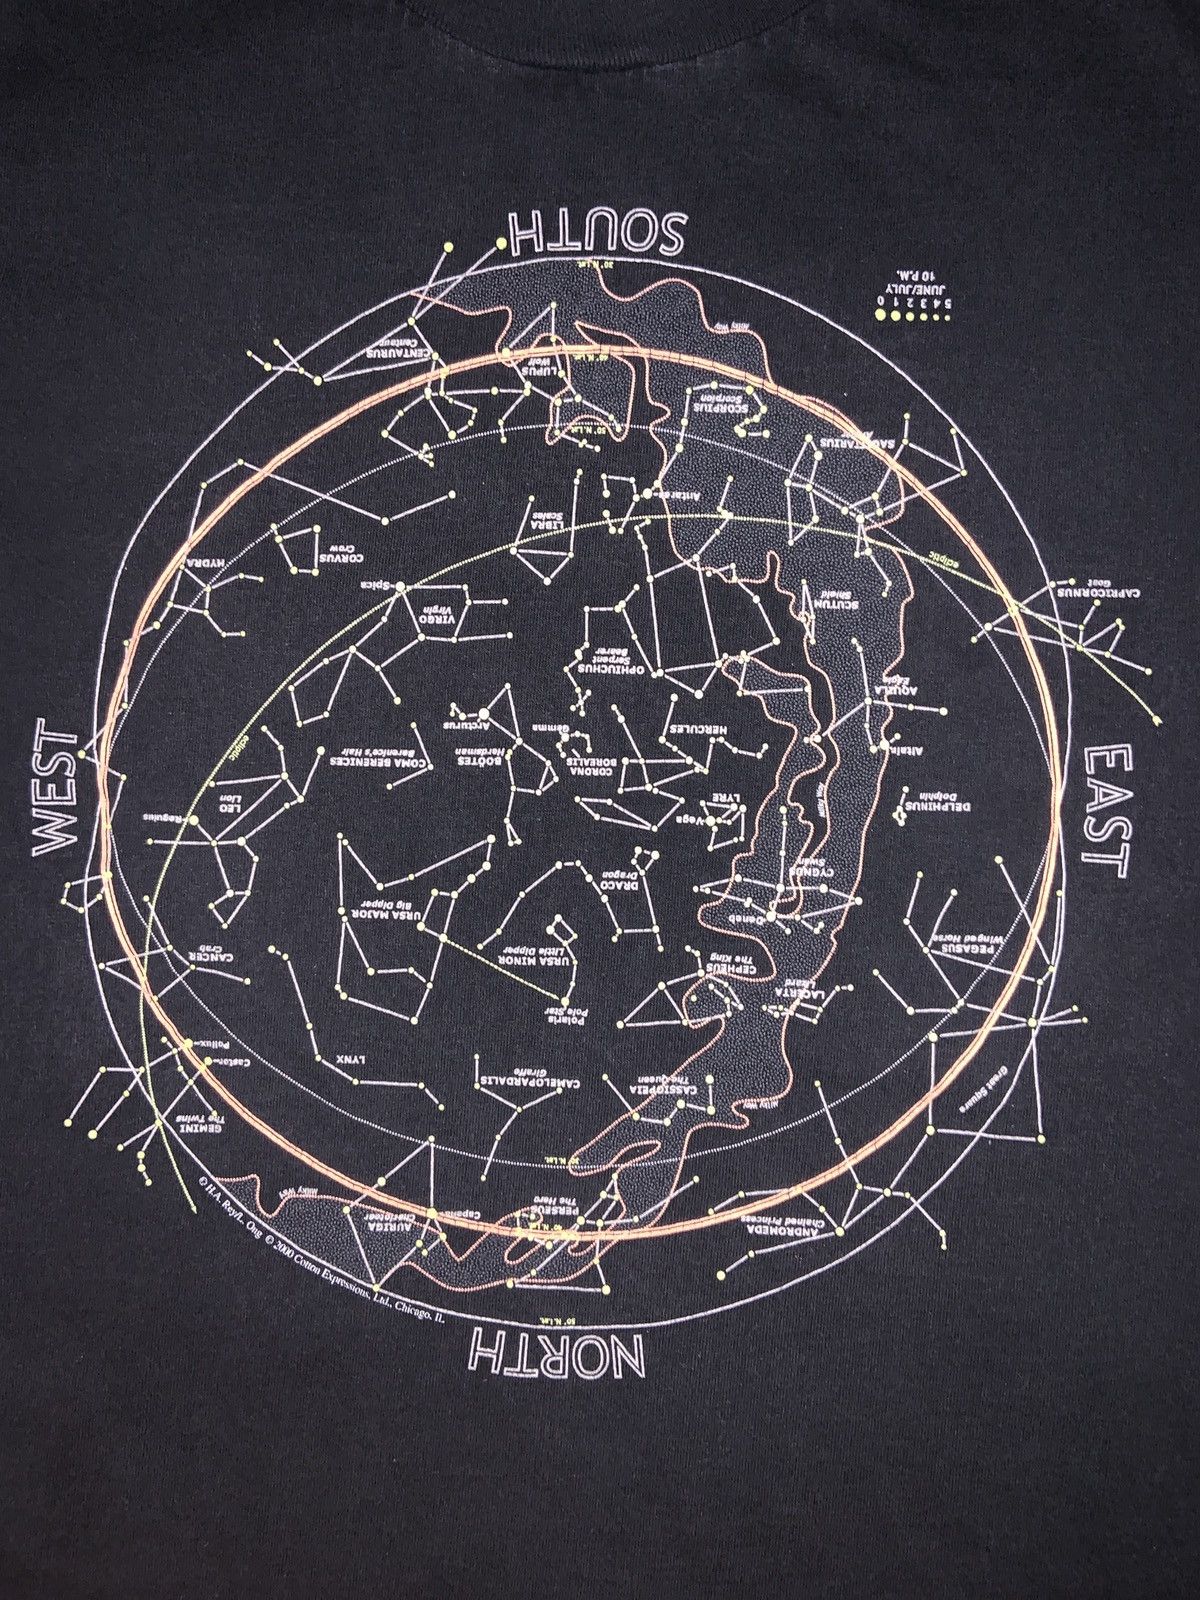 SOUTH
30° N. Lat.
JUNE/JULY
10 P.M.
5 4 3 2 1 0
Milky Way
CENTAURUS
Centaur
LUPUS
Wolf
40° N. Lat.
SCORPIUS
Scorpion
50° N. Lat.
SAGITTARIUS
Antares
LIBRA
Scales
CORVUS
Crow
HYDRA
ecliptic
CAPRICORNUS
Goat
Spica
VIRGO
Virgin
SCUTUM
Shield
OPHIUCHUS
Serpent
Bearer
AQUILA
Eagle
Altair
Arcturus
BOÖTES
Herdsman
Gemma
CORONA
BOREALIS
HERCULES
COMA BERENICES
Barenice's Hair
ecliptic
WEST
EAST
LEO
Lion
Regulus
LYRE
Vega
Milky Way
DELPHINUS
Dolphin
CYGNUS
Swan
Deneb
DRACO
Dragon
URSA MAJOR
Big Dipper
URSA MINOR
Little Dipper
PEGASUS
Winged Horse
CANCER
Crab
CEPHEUS
The King
LACERTA
Lizard
Polaris
Pole Star
LYNX
Pollux
Castor
CAMELOPARDALIS
Giraffe
CASSIOPEIA
The Queen
Great Square
GEMINI
The Twins
Milky Way
30° N. Lat.
Milky Way
AURIGA
Charioteer
Capella
PERSEUS
The Hero
40° N. Lat.
ANDROMEDA
Chained Princess
50° N. Lat.
© H.A. Rey/L. Ong © 2000 Cotton Expressions, Ltd., Chicago, IL
NORTH